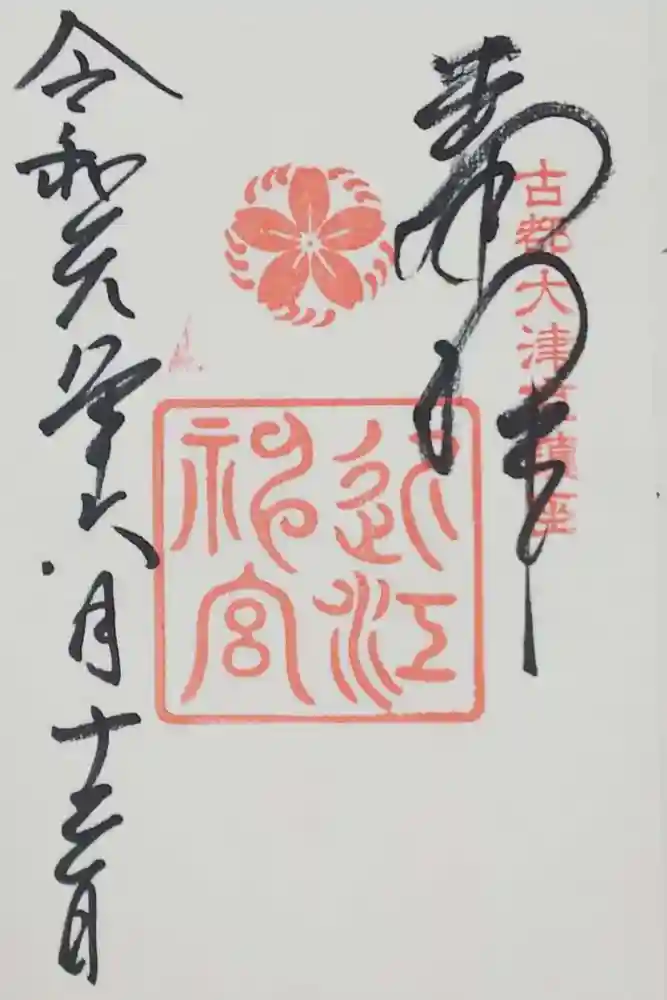 奉拝
古都大津京鎮座
近江
神宮
令和元年六月十三日